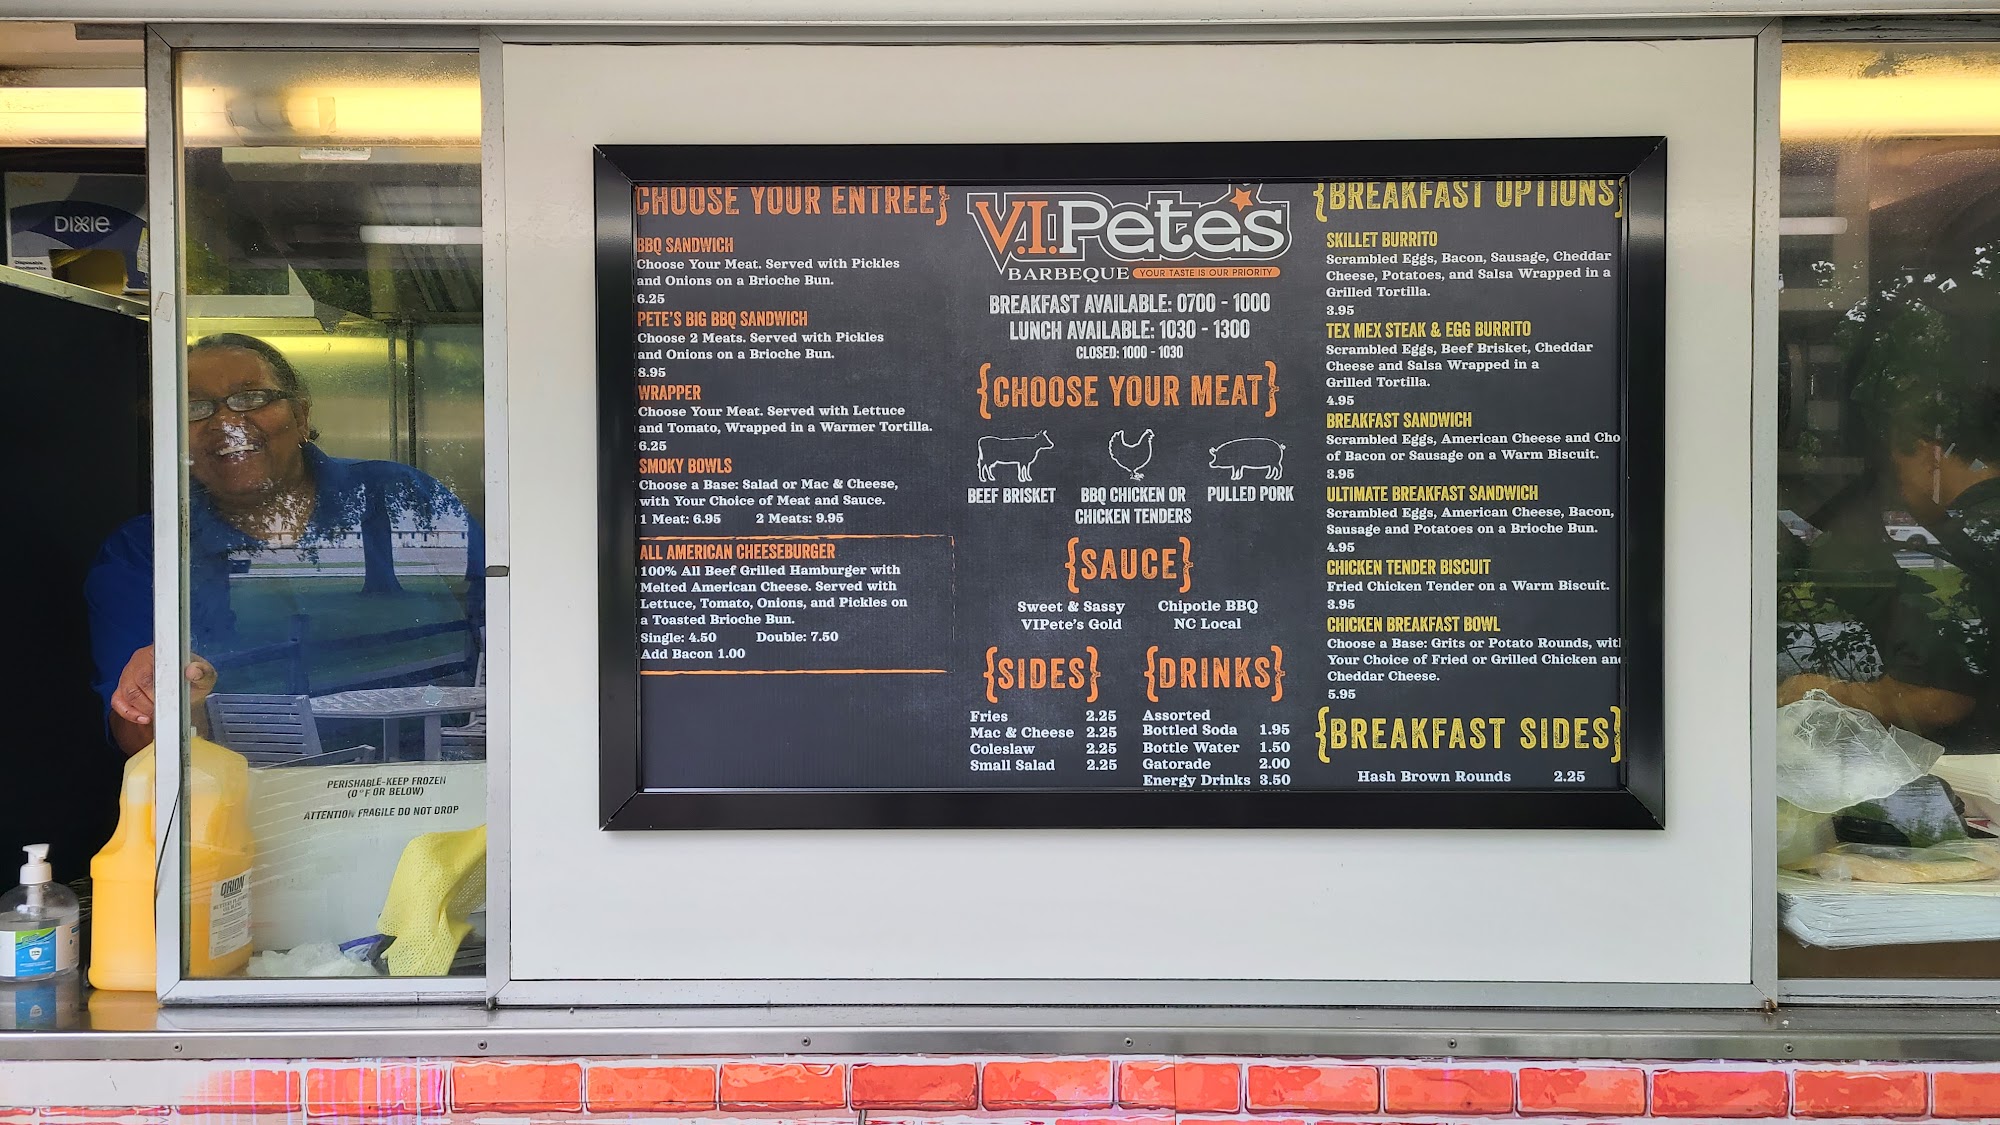 DIXIE
CHOOSE YOUR ENTREE}
BBQ SANDWICH
Choose Your Meat. Served with Pickles
and Onions on a Brioche Bun.
6.25
PETE'S BIG BBQ SANDWICH
Choose 2 Meats. Served with Pickles
and Onions on a Brioche Bun.
8.95
WRAPPER
Choose Your Meat. Served with Lettuce
and Tomato, Wrapped in a Warmer Tortilla.
6.25
SMOKY BOWLS
Choose a Base: Salad or Mac & Cheese,
with Your Choice of Meat and Sauce.
1 Meat: 6.95 2 Meats: 9.95
ALL AMERICAN CHEESEBURGER
100% All Beef Grilled Hamburger with
Melted American Cheese. Served with
Lettuce, Tomato, Onions, and Pickles on
a Toasted Brioche Bun.
Single: 4.50 Double: 7.50
Add Bacon 1.00
V.I.Pete's
BARBEQUE YOUR TASTE IS OUR PRIORITY
BREAKFAST AVAILABLE: 0700 - 1000
LUNCH AVAILABLE: 1030 - 1300
CLOSED: 1000 - 1030
{CHOOSE YOUR MEAT}
BEEF BRISKET
BBQ CHICKEN OR
CHICKEN TENDERS
PULLED PORK
{SAUCE}
Sweet & Sassy Chipotle BBQ
VIPete's Gold NC Local
{SIDES}
Fries 2.25
Mac & Cheese 2.25
Coleslaw 2.25
Small Salad 2.25
{DRINKS}
Assorted
Bottled Soda 1.95
Bottle Water 1.50
Gatorade 2.00
Energy Drinks 3.50
{BREAKFAST OPTIONS}
SKILLET BURRITO
Scrambled Eggs, Bacon, Sausage, Cheddar
Cheese, Potatoes, and Salsa Wrapped in a
Grilled Tortilla.
3.95
TEX MEX STEAK & EGG BURRITO
Scrambled Eggs, Beef Brisket, Cheddar
Cheese and Salsa Wrapped in a
Grilled Tortilla.
4.95
BREAKFAST SANDWICH
Scrambled Eggs, American Cheese and Cho
of Bacon or Sausage on a Warm Biscuit.
3.95
ULTIMATE BREAKFAST SANDWICH
Scrambled Eggs, American Cheese, Bacon,
Sausage and Potatoes on a Brioche Bun.
4.95
CHICKEN TENDER BISCUIT
Fried Chicken Tender on a Warm Biscuit.
3.95
CHICKEN BREAKFAST BOWL
Choose a Base: Grits or Potato Rounds, with
Your Choice of Fried or Grilled Chicken and
Cheddar Cheese.
5.95
{BREAKFAST SIDES}
Hash Brown Rounds 2.25
PERISHABLE-KEEP FROZEN
(0°F OR BELOW)
ATTENTION FRAGILE DO NOT DROP
ORION